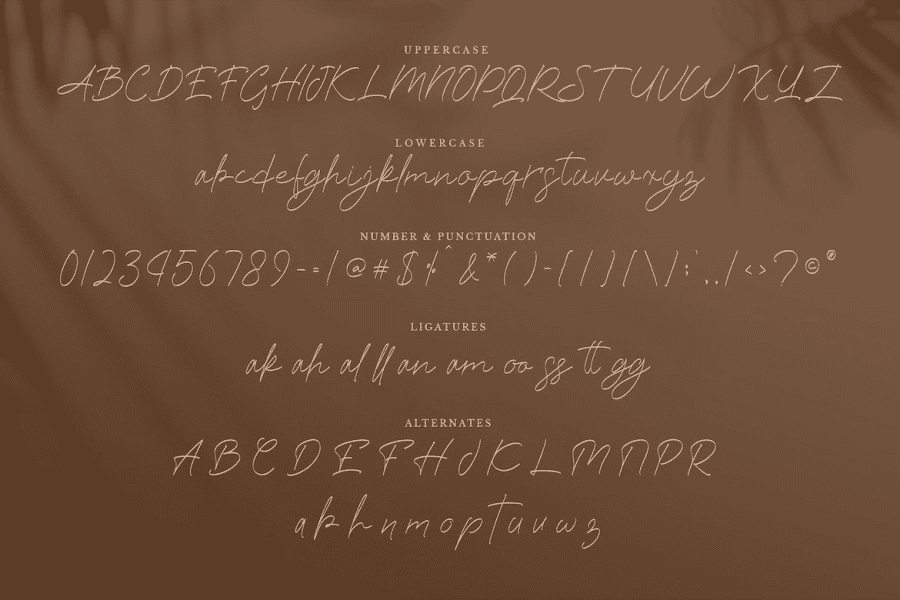 UPPERCASE
ABCDEFGHIJKLMNOPQRSTUVWXYZ
LOWERCASE
abcdefghijklmnopqrstuvwxyz
NUMBER & PUNCTUATION
0123456789-=/@#$%^&*()-{/}[\];',./<>?©®
LIGATURES
ak ah al ll an am oo ss tt gg
ALTERNATES
ABCDEFHJKLMNPR
abhnmoptuvwz